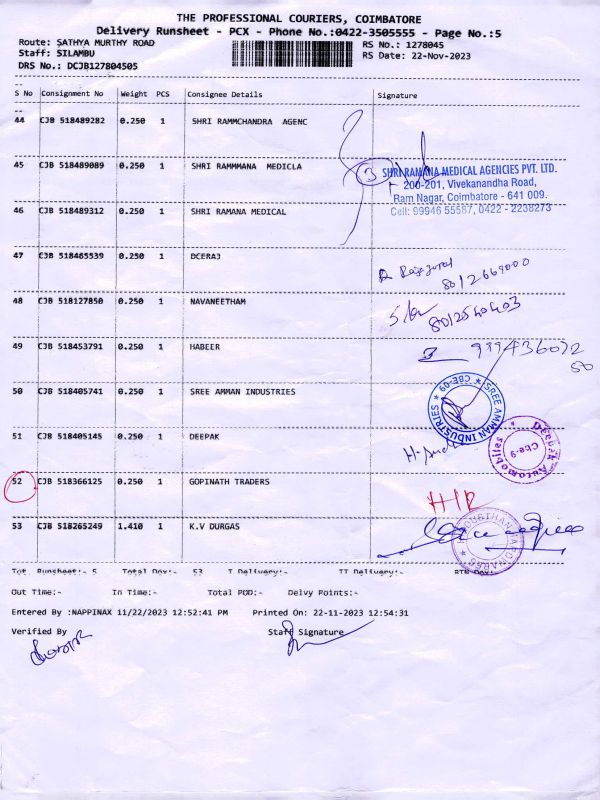 THE PROFESSIONAL COURIERS, COIMBATORE
Delivery Runsheet - PCX - Phone No.:0422-3505555 - Page No.:5
Route: SATHYA MURTHY ROAD
RS No.: 1278045
Staff: SILAMBU
RS Date: 22-Nov-2023
DRS No.: DCJB127804505
S No Consignment No Weight PCS Consignee Details Signature
44 CJB 518489282 0.250 1 SHRI RAMMCHANDRA AGENC
45 CJB 518489089 0.250 1 SHRI RAMMMANA MEDICLA
3
SHRI RAMANA MEDICAL AGENCIES PVT. LTD.
200-201, Vivekanandha Road,
Ram Nagar, Coimbatore - 641 009.
Cell: 99946 55587, 0422 - 2238273
46 CJB 518489312 0.250 1 SHRI RAMANA MEDICAL
47 CJB 518465539 0.250 1 DCERAJ
8012669000
48 CJB 518127850 0.250 1 NAVANEETHAM
8012540403
49 CJB 518453791 0.250 1 HABEER
50 CJB 518405741 0.250 1 SREE AMMAN INDUSTRIES
SREE AMMAN INDUSTRIES ★ CBE-09 ★
51 CJB 518405145 0.250 1 DEEPAK
Deepak Automobiles ★ Cbe-9
52 CJB 518366125 0.250 1 GOPINATH TRADERS
53 CJB 518265249 1.410 1 K.V DURGAS
Tot. Runsheet:- 5 Total Dov:- 53 T Delivery:- TT Delivery:-
Out Time:- In Time:- Total POD:- Delvy Points:-
Entered By :NAPPINAX 11/22/2023 12:52:41 PM Printed On: 22-11-2023 12:54:31
Verified By Staff Signature